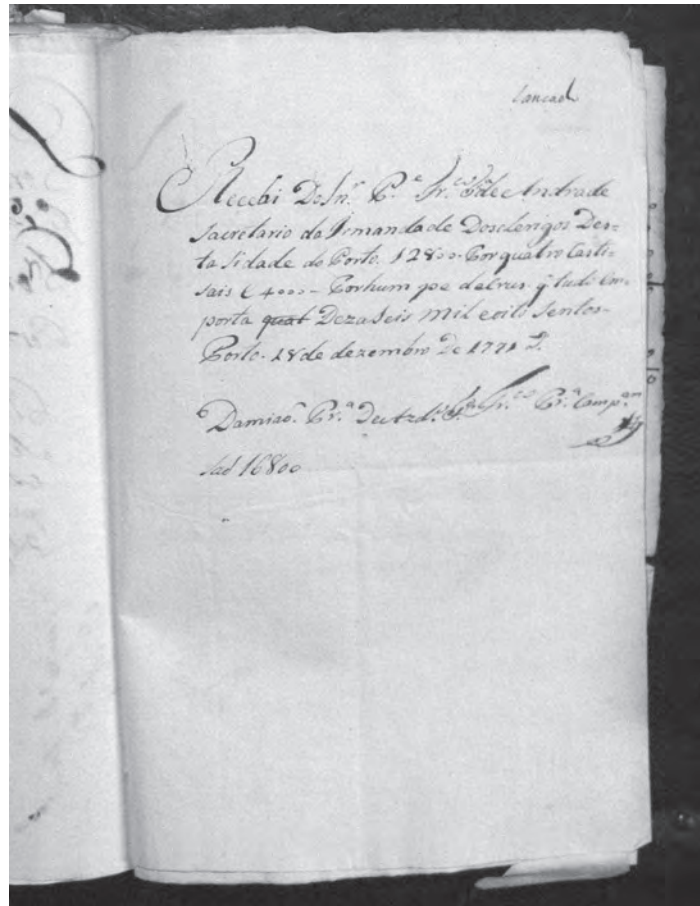 Lancad
Recebi Do Snr. P.e Fr.co de Andrade
sacretario da Irmandade Dosclerigos Des=
ta Sidade do Porto. 12800 - Por quatro Casti=
sais e 4000 - Porhum pe decrus q tudo Em=
porta qual Dezaseis mil eoito sentos -
Porto - 18 de dezembro De 1771
Damiaõ Pr.a De
saõ 16800